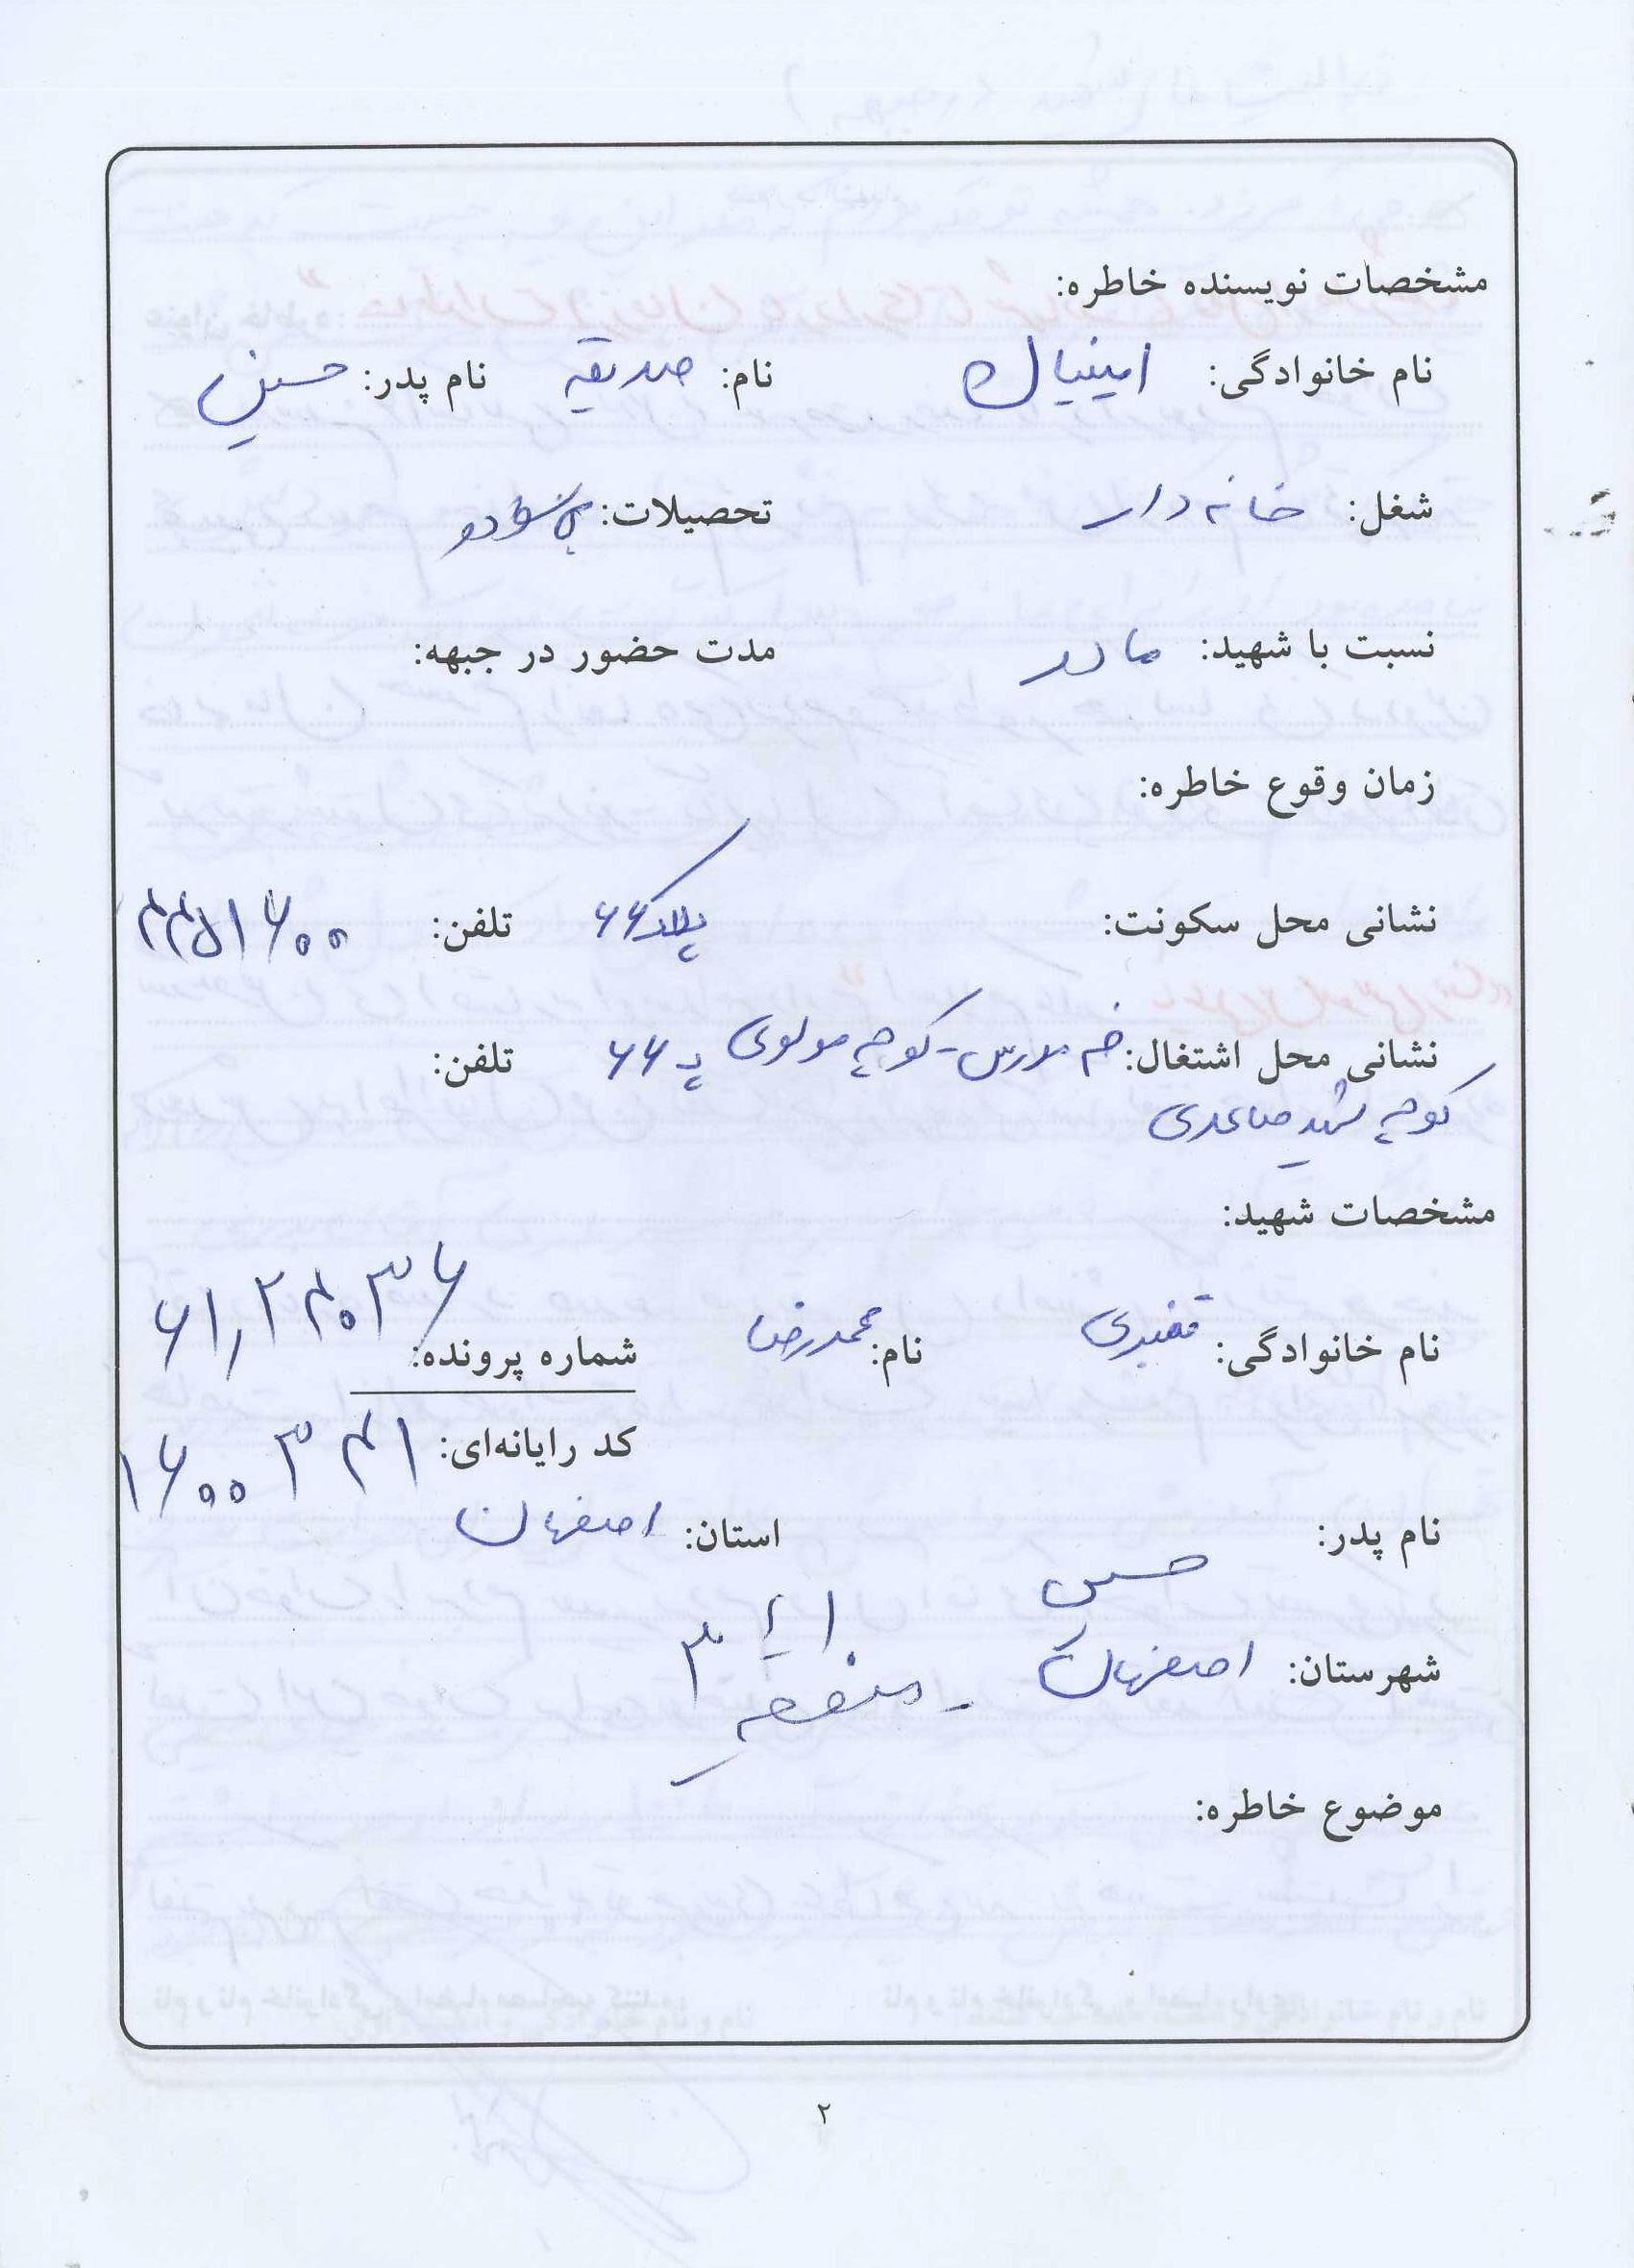 مشخصات نویسنده خاطره:
نام خانوادگی: امینیان نام: صدیقه نام پدر: حسین
شغل: خانه دار تحصیلات:
نسبت با شهید: مادر مدت حضور در جبهه:
زمان وقوع خاطره:
نشانی محل سکونت: پلاک ۶۶ تلفن: ۴۴۵۱۶۰۰
نشانی محل اشتغال: کوچه مولوی پ ۶۶ تلفن:
کوچه شهید صاعدی
مشخصات شهید:
نام خانوادگی: نام: محمدرضا شماره پرونده: ۶۱,۲۴۰۳۶
کد رایانه‌ای: ۱۶۰۰۳۴۱
نام پدر: حسین استان: اصفهان
شهرستان: اصفهان - منطقه ۳
موضوع خاطره:
۲